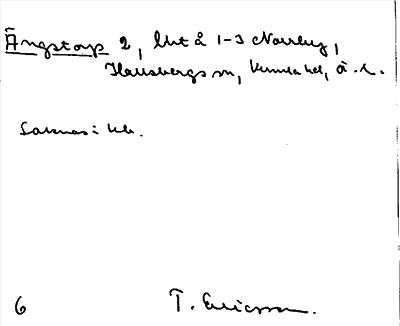 Ängstorp 2, Utå 1-3 Norrby,
Hallsbergs sn, Kumla hd, Ö.l.
Saknas i kb.
6 T. Ericsson.